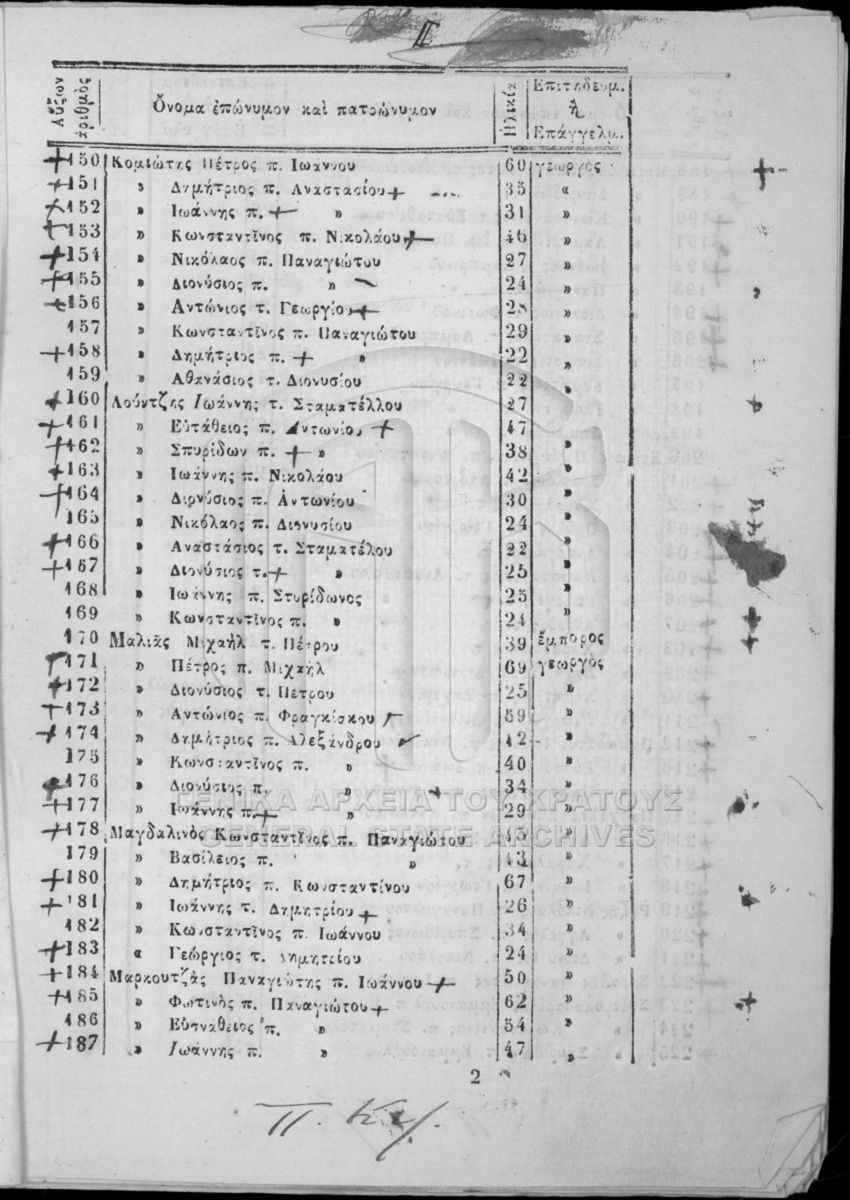 II
Αὔξων ἀριθμὸς Ὄνομα ἐπώνυμον καὶ πατρώνυμον Ἡλικία Ἐπιτήδευμ. ἢ Ἐπάγγελμ.
150 Κομιώτης Πέτρος π. Ἰωάννου 60 γεωργὸς
151 » Δημήτριος π. Αναστασίου 35 «
152 » Ἰωάννης π. » 31 »
153 » Κωνσταντῖνος π. Νικολάου 46 »
154 » Νικόλαος π. Παναγιώτου 27 »
155 » Διονύσιος π. » 24 »
156 » Αντώνιος τ. Γεωργίου 28 »
157 » Κωνσταντῖνος π. Παναγιώτου 29 »
158 » Δημήτριος π. » 22 »
159 » Αθανάσιος τ. Διονυσίου 22 »
160 Λούντζης Ἰωάννης τ. Σταματέλλου 27 »
161 » Εὐτάθειος π. Αντωνίου 47 »
162 » Σπυρίδων π. » 38 »
163 » Ἰωάννης π. Νικολάου 42 »
164 » Διονύσιος π. Ἀντωνίου 30 »
165 » Νικόλαος π. Διονυσίου 24 »
166 » Αναστάσιος τ. Σταματέλου 22 »
167 » Διονύσιος τ. » 25 »
168 » Ἰωάννης π. Σπυρίδωνος 25 »
169 » Κωνσταντῖνος π. » 24 »
170 Μαλιᾶς Μιχαὴλ τ. Πέτρου 39 ἔμπορος
171 » Πέτρος π. Μιχαὴλ 69 γεωργὸς
172 » Διονύσιος τ. Πέτρου 25 »
173 » Αντώνιος π. Φραγκίσκου 59 »
174 » Δημήτριος π. Αλεξάνδρου 42 »
175 » Κωνσταντῖνος π. » 40 »
176 » Διονύσιος π. » 34 »
177 » Ἰωάννης π. » 29 »
178 Μαγδαλινὸς Κωνσταντῖνος π. Παναγιώτου 45 »
179 » Βασίλειος π. » 43 »
180 » Δημήτριος π. Κωνσταντίνου 67 »
181 » Ἰωάννης τ. Δημητρίου 26 »
182 » Κωνσταντῖνος π. Ἰωάννου 34 »
183 « Γεώργιος τ. Δημητρίου 24 »
184 Μαρκουτζᾶς Παναγιώτης π. Ἰωάννου 50 »
185 » Φωτινὸς π. Παναγιώτου 62 »
186 » Εὐσταθειος π. » 54 »
187 » Ἰωάννης π. » 47 »
ΓΕΝΙΚΑ ΑΡΧΕΙΑ ΤΟΥ ΚΡΑΤΟΥΣ
GENERAL STATE ARCHIVES
2